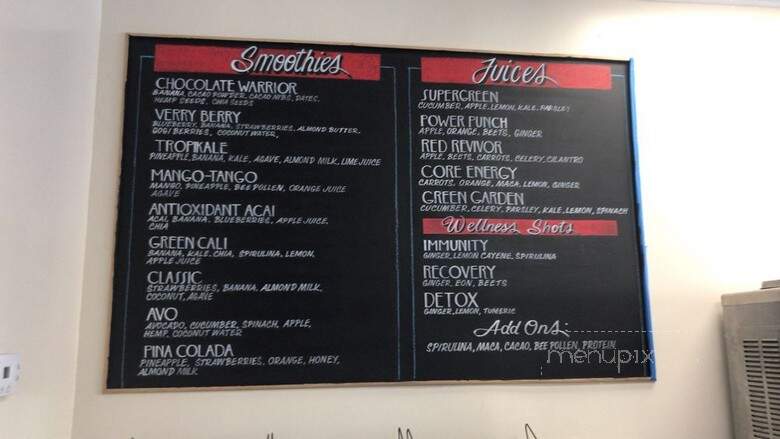 Smoothies
CHOCOLATE WARRIOR
BANANA, CACAO POWDER, CACAO NIBS, DATES,
HEMP SEEDS, CHIA SEEDS
VERRY BERRY
BLUEBERRY, BANANA, STRAWBERRIES, ALMOND BUTTER,
GOGI BERRIES, COCONUT WATER,
TROPIKALE
PINEAPPLE, BANANA, KALE, AGAVE, ALMOND MILK, LIME JUICE
MANGO-TANGO
MANGO, PINEAPPLE, BEE POLLEN, ORANGE JUICE
AGAVE
ANTIOXIDANT ACAI
ACAI, BANANA, BLUEBERRIES, APPLE JUICE,
CHIA
GREEN CALI
BANANA, KALE, CHIA, SPIRULINA, LEMON,
APPLE JUICE
CLASSIC
STRAWBERRIES, BANANA, ALMOND MILK,
COCONUT, AGAVE
AVO
AVOCADO, CUCUMBER, SPINACH, APPLE,
HEMP, COCONUT WATER
PINA COLADA
PINEAPPLE, STRAWBERRIES, ORANGE, HONEY,
ALMOND MILK
Juices
SUPERGREEN
CUCUMBER, APPLE, LEMON, KALE, PARSLEY
POWER PUNCH
APPLE, ORANGE, BEETS, GINGER
RED REVIVOR
APPLE, BEETS, CARROTS, CELERY, CILANTRO
CORE ENERGY
CARROTS, ORANGE, MACA, LEMON, GINGER
GREEN GARDEN
CUCUMBER, CELERY, PARSLEY, KALE, LEMON, SPINACH
Wellness Shots
IMMUNITY
GINGER, LEMON CAYENE, SPIRULINA
RECOVERY
GINGER, EON, BEETS
DETOX
GINGER, LEMON, TUMERIC
Add Ons
SPIRULINA, MACA, CACAO, BEE POLLEN, PROTEIN
menupix